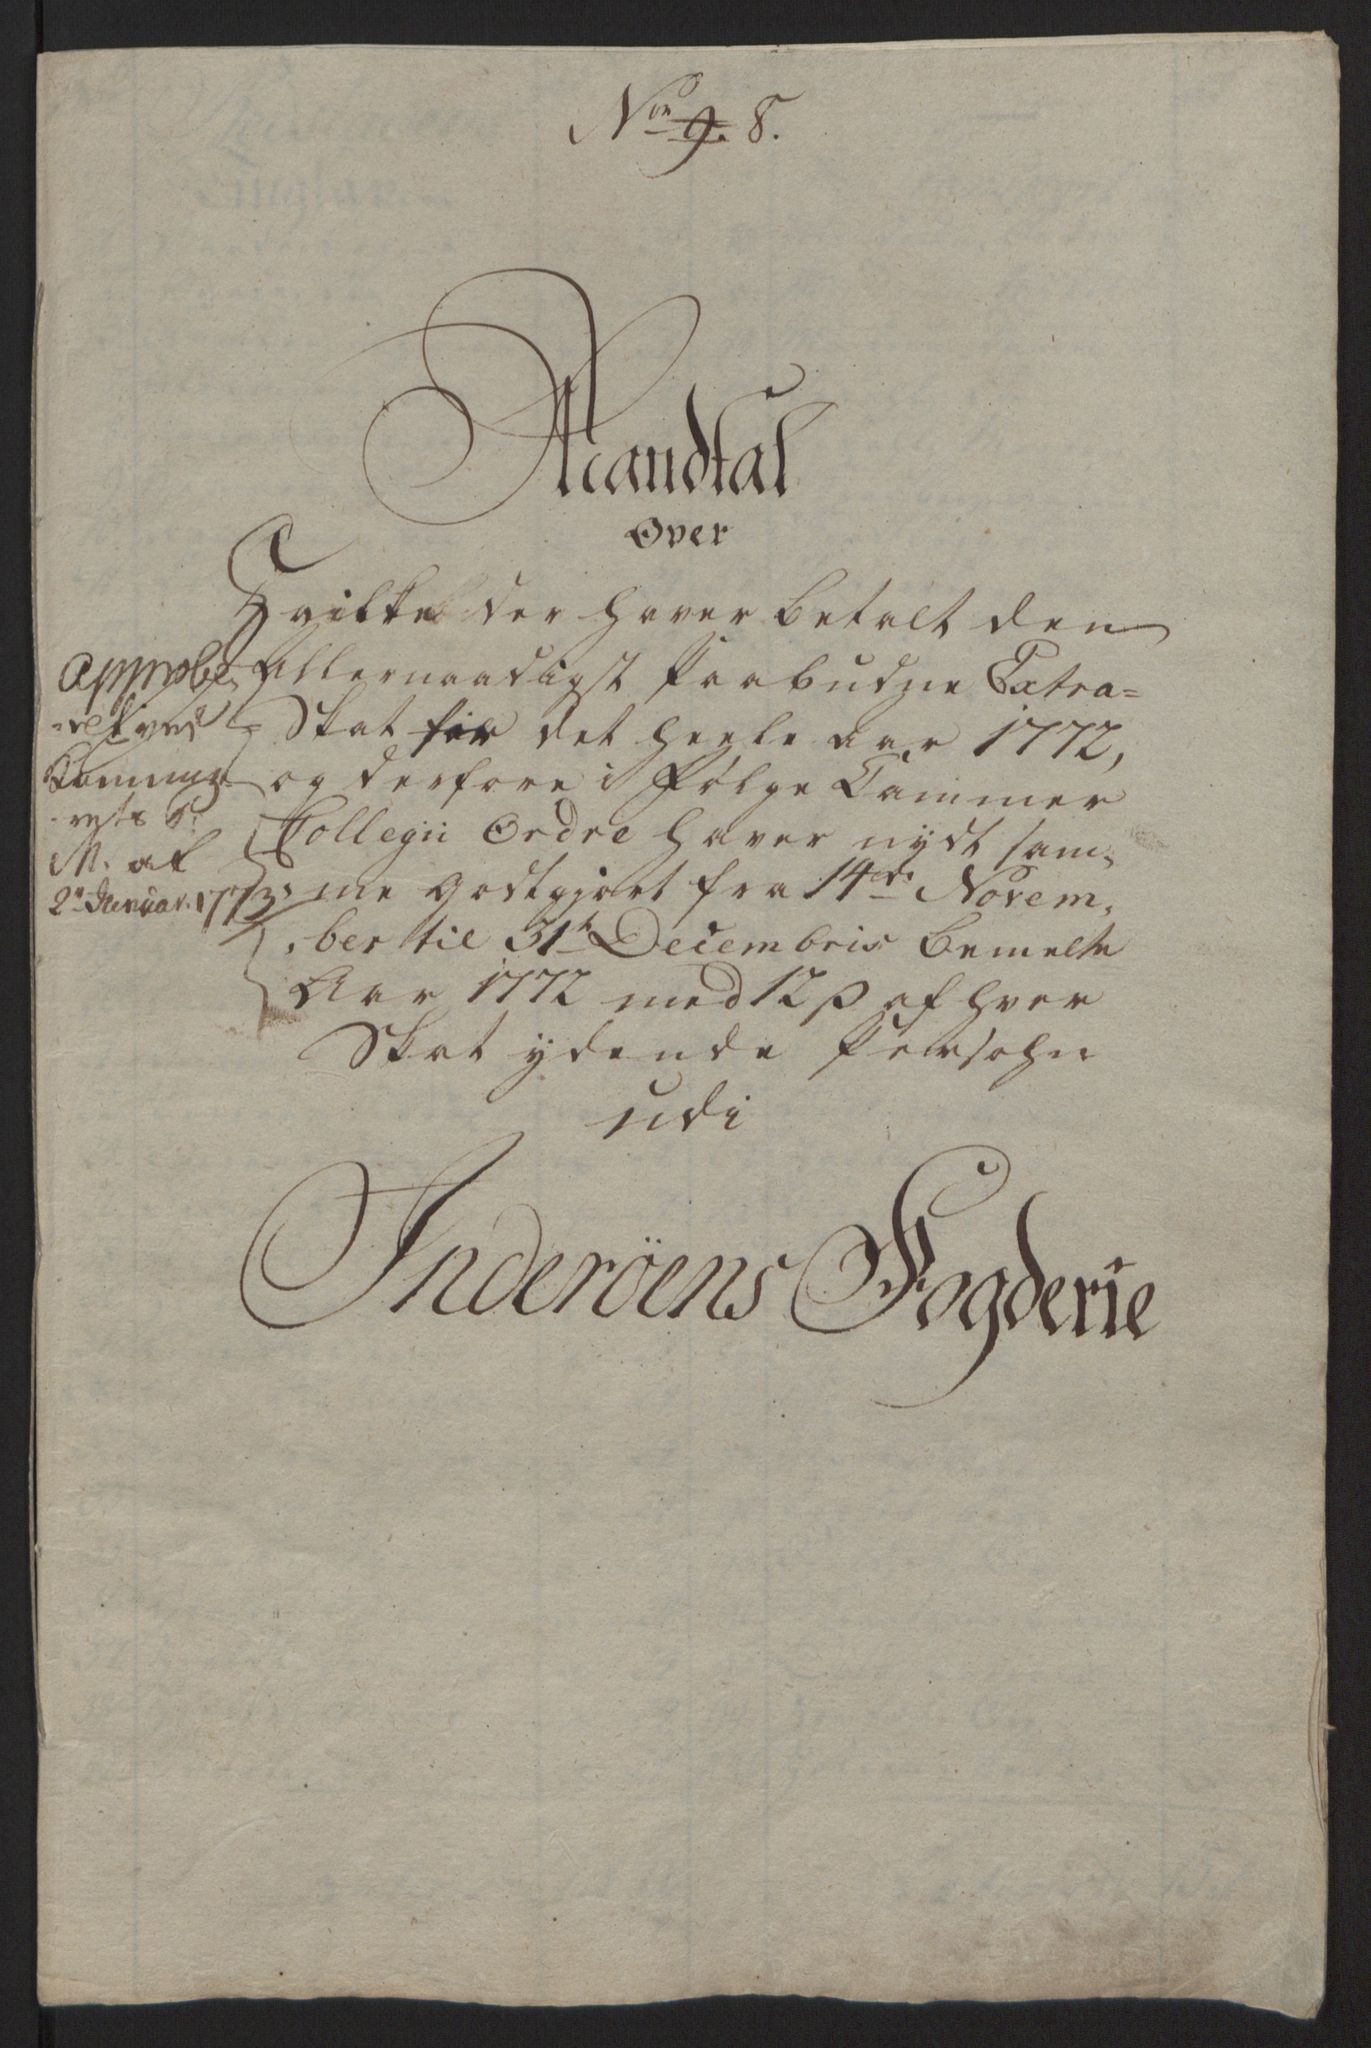 No 9. 8.
Mandtal
Over
Hvilke der haver betalt den
Allernaadigst Paabudne Extra=
Skat for det heele aar 1772,
og derfore i Følge Cammer
Collegii Ordre haver nydt sam-
me Godtgjort fra 14de Novem-
ber til 31te Decembris bemelte
Aar 1772 med 12 ß af hver
Skat ydende Persohn
udi
Inderöens Fogderie
Approbe-
-ret ved
Kamme-
M. af
2n Januar. 1773.